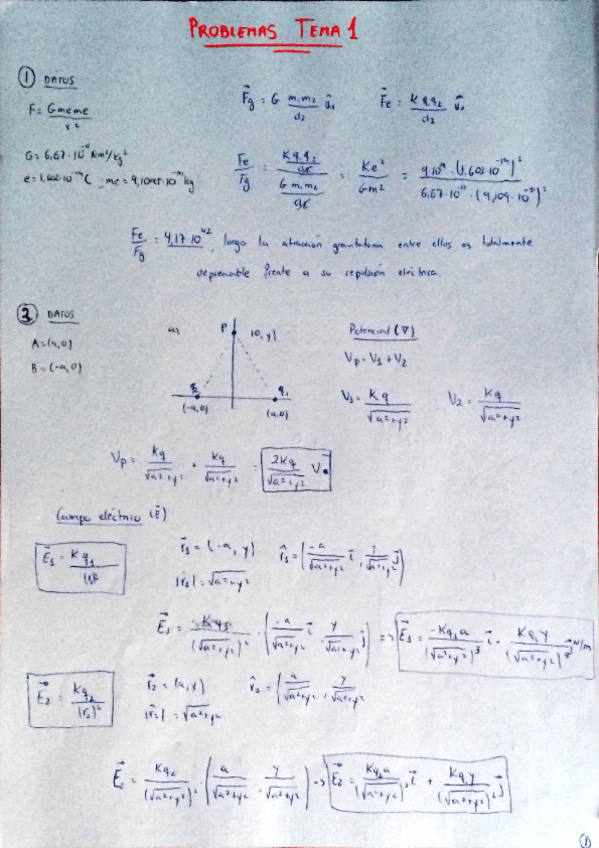 PROBLEMAS TEMA 1
① DATOS
F = Gmeme / r²
G = 6,67·10⁻¹¹ Nm²/kg²
e = 1,602·10⁻¹⁹ C , me = 9,1095·10⁻³¹ kg
F⃗g = G m₁m₂ / d² u⃗r F⃗e = K q₁q₂ / d² u⃗r
Fe / Fg = (K q₁q₂ / d²) / (G m₁m₂ / d²) = Ke² / Gm² = 9·10⁹ · (1,602·10⁻¹⁹)² / 6,67·10⁻¹¹ · (9,109·10⁻³¹)²
Fe / Fg = 4,17·10⁴², luego la atracción gravitatoria entre ellos es totalmente
depreciable frente a su repulsión eléctrica.
② DATOS
A = (a,0)
B = (-a,0)
a)
P (0,y)
q₂ q₁
(-a,0) (a,0)
Potencial (V)
Vp = V₁ + V₂
V₁ = Kq / √a²+y² ; V₂ = Kq / √a²+y²
Vp = Kq / √a²+y² + Kq / √a²+y² = 2Kq / √a²+y² V
Campo eléctrico (E⃗)
E⃗₁ = K q₁ / |r₁|²
r⃗₁ = (-a, y) r̂₁ = (-a / √a²+y² i⃗, y / √a²+y² j⃗)
|r⃗₁| = √a²+y²
E⃗₁ = Kq₁ / (√a²+y²)² · (-a / √a²+y² i⃗, y / √a²+y² j⃗) => E⃗₁ = -Kq₁a / (√a²+y²)³ i⃗ + Kq₁y / (√a²+y²)³ j⃗ N/m
E⃗₂ = kq₂ / |r₂|²
r⃗₂ = (a,y) r̂₂ = (a / √a²+y², y / √a²+y²
|r⃗₂| = √a²+y²
E⃗₂ = Kq₂ / (√a²+y²)² (a / √a²+y², y / √a²+y²) -> E⃗₂ = Kq₂a / (√a²+y²)³ i⃗ + Kq₂y / (√a²+y²)³ j⃗
①